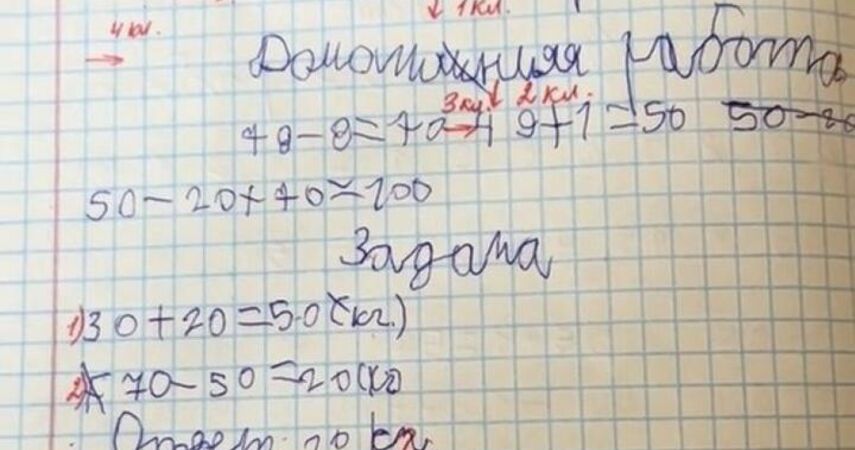 4 кл. ↓ 1 кл.
→ Домашняя работа
3 кл. ↓ 2 кл.
78-8=70 → 49+1=50
50-20+70=100
Задача
1) 30+20=50 (кг.)
2) 70-50=20 (кг)
Ответ: 20 кг